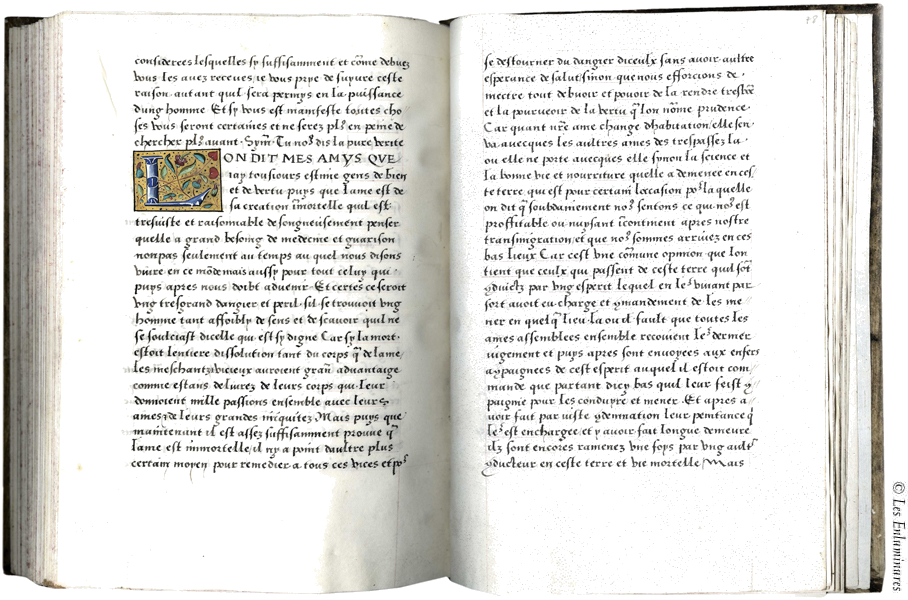 considerees lesquelles sy suffisamment et cõme debuez
vous les auez receues ie vous prye de suyure ceste
raison autant quil sera permys en la puissance
dung homme Et sy vous est manifeste toutes cho
ses vous seront certaines et ne serez plꝰ en peine de
chercher plꝰ auant. Sym̃. Tu noꝰ dis la pure verite
LON DIT MES AMYS QVE
iay tousiours estime gens de bien
et de vertu puys que lame est de
sa creation ĩmortelle quil est
tresiuste et raisonnable de songneusement penser
quelle a grand besoing de medecine et guarison
non pas seulement au temps au quel nous disons
viure en ce mõde mais aussy pour tout celuy qui
puys apres nous doibt aduenir Et certes ce seroit
vng tresgrand dangier et peril sil se trouuoit vng
homme tant affoibly de sens et de scauoir quil ne
se soulciast dicelle qui est sy digne Car sy la mort
estoit lentiere dissolution tant du corps q̃ de lame
les meschantz vicieux auroient gran aduantaige
comme estans deliurez de leurs corps qui leur
donnoient mille passions ensemble auec leurs
ames de leurs grandes iniquitez Mais puys que
maintenant il est assez suffisamment prouue q̃
lame est immortelle il ny a point daultre plus
certain moyen pour remedier a tous ces vices et poꝰ
48
se destourner du dangier diceulx sans auoir aultre
esperance de salut sinon que nous efforcions de
mectre tout debuoir et pouoir de la rendre tresbõe
et la pourueoir de la vertu q̃ lon nõme prudence
Car quant nr̃e ame change dhabitation elle sen
va auecques les aultres ames des trespassez la
ou elle ne porte auecques elle synon la science et
la bonne vie et nourriture quelle a demenee en ces
te terre qui est pour certain loccasion poꝰ la quelle
on dit q̃ soubdainement noꝰ sentons ce qui noꝰ est
proffitable ou nuysant ĩcontinent apres nostre
transmigration et que noꝰ sommes arriuez en ces
bas lieux Car cest vne cõmune opinion que lon
tient que ceulx qui passent de ceste terre qui sõt
ꝯduictz par vng esperit lequel en leꝰ viuant par
sort auoit eu charge et ꝯmandement de les me
ner en quelq̃ lieu la ou il fault que toutes les
ames assemblees ensemble recoiuent leꝰ dernier
iugement et puys apres sont enuoyees aux enfers
acꝯpaignees de cest esperit auquel il estoit com
mande que partant dicy bas quil leur feist ꝯ
paignie pour les conduyre et mener. Et apres a
uoir fait par iuste ꝯdemnation leur penitance q̃
leꝰ est enchargee et y auoir fait longue demeure
ilz sont encores ramenez vne foys par vng aultꝰ
ꝯducteur en ceste terre et vie mortelle Mais
© Les Enluminures